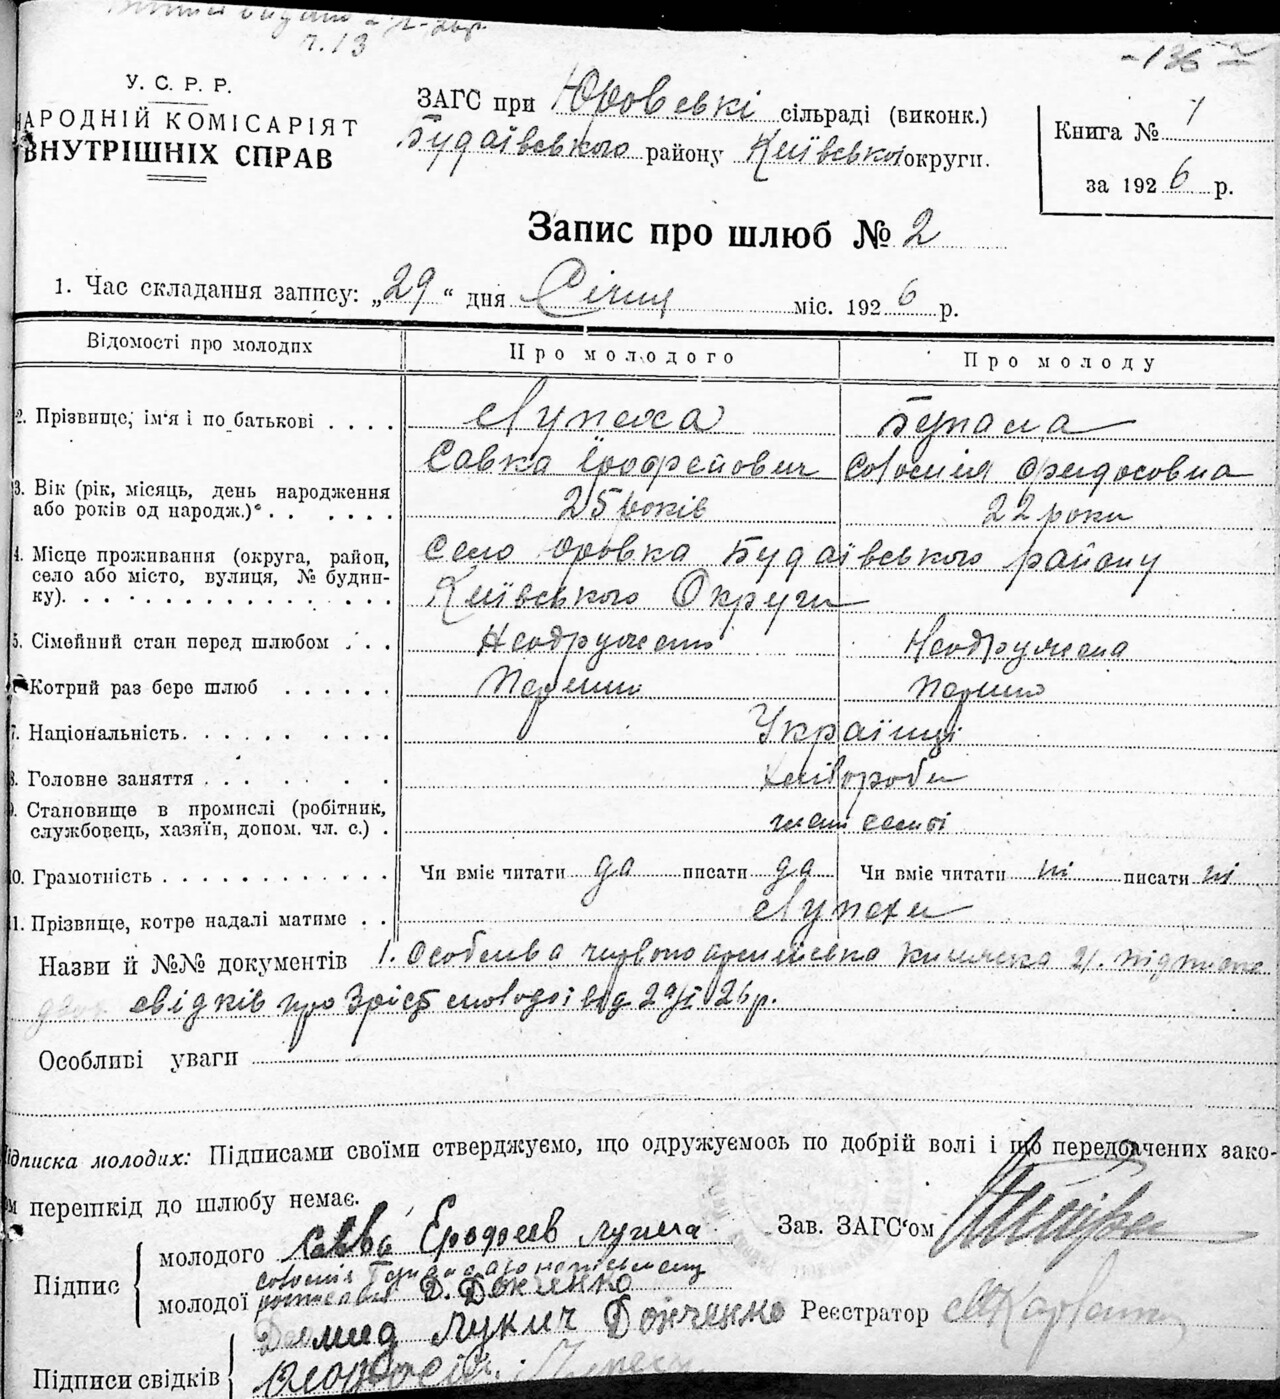 ч. 13
- 136 -
У. С. Р. Р.
НАРОДНІЙ КОМІСАРІЯТ
ВНУТРІШНІХ СПРАВ
ЗАГС при Юровській сільраді (виконк.)
Будаївського району Київської округи.
Книга № 1
за 1926 р.
Запис про шлюб № 2
1. Час складання запису: „29“ дня Січня міс. 1926 р.
Відомості про молодих
Про молодого
Про молоду
2. Прізвище, ім'я і по батькові . . . .
Лупеха
Савка Єрофейович
Соломія Федосовна
3. Вік (рік, місяць, день народження
або років од народж.)* . . . . . . .
25 років
22 роки
4. Місце проживання (округа, район,
село або місто, вулиця, № будин-
ку). . . . . . . . . . . . . . .
Село Юровка Будаївського району
Київського Округи
5. Сімейний стан перед шлюбом . . .
Неодружений
Неодружена
6. Котрий раз бере шлюб . . . . . .
Перший
Перший
7. Національність. . . . . . . . . .
Українці
8. Головне заняття . . . . . . . .
Хлібороби
9. Становище в промислі (робітник,
службовець, хазяїн, допом. чл. с.) .
члени семьі
10. Грамотність . . . . . . . . . . . .
Чи вміє читати да писати да
Чи вміє читати ні писати ні
11. Прізвище, котре надалі матиме . .
Лупехи
Назви й №№ документів 1. Особлива червоноармейська книжка 2/.
свідків про зріст молодої від 29/I 26 р.
Особливі уваги
Підписка молодих: Підписами своїми стверджуємо, що одружуємось по добрій волі і що передбачених зако-
ном перешкід до шлюбу немає.
Підпис
молодого Савва Ерофеев Лупеха
молодої Д. Донченко
Зав. ЗАГС'ом
Реєстратор
Підписи свідків
Демид Лукич Донченко